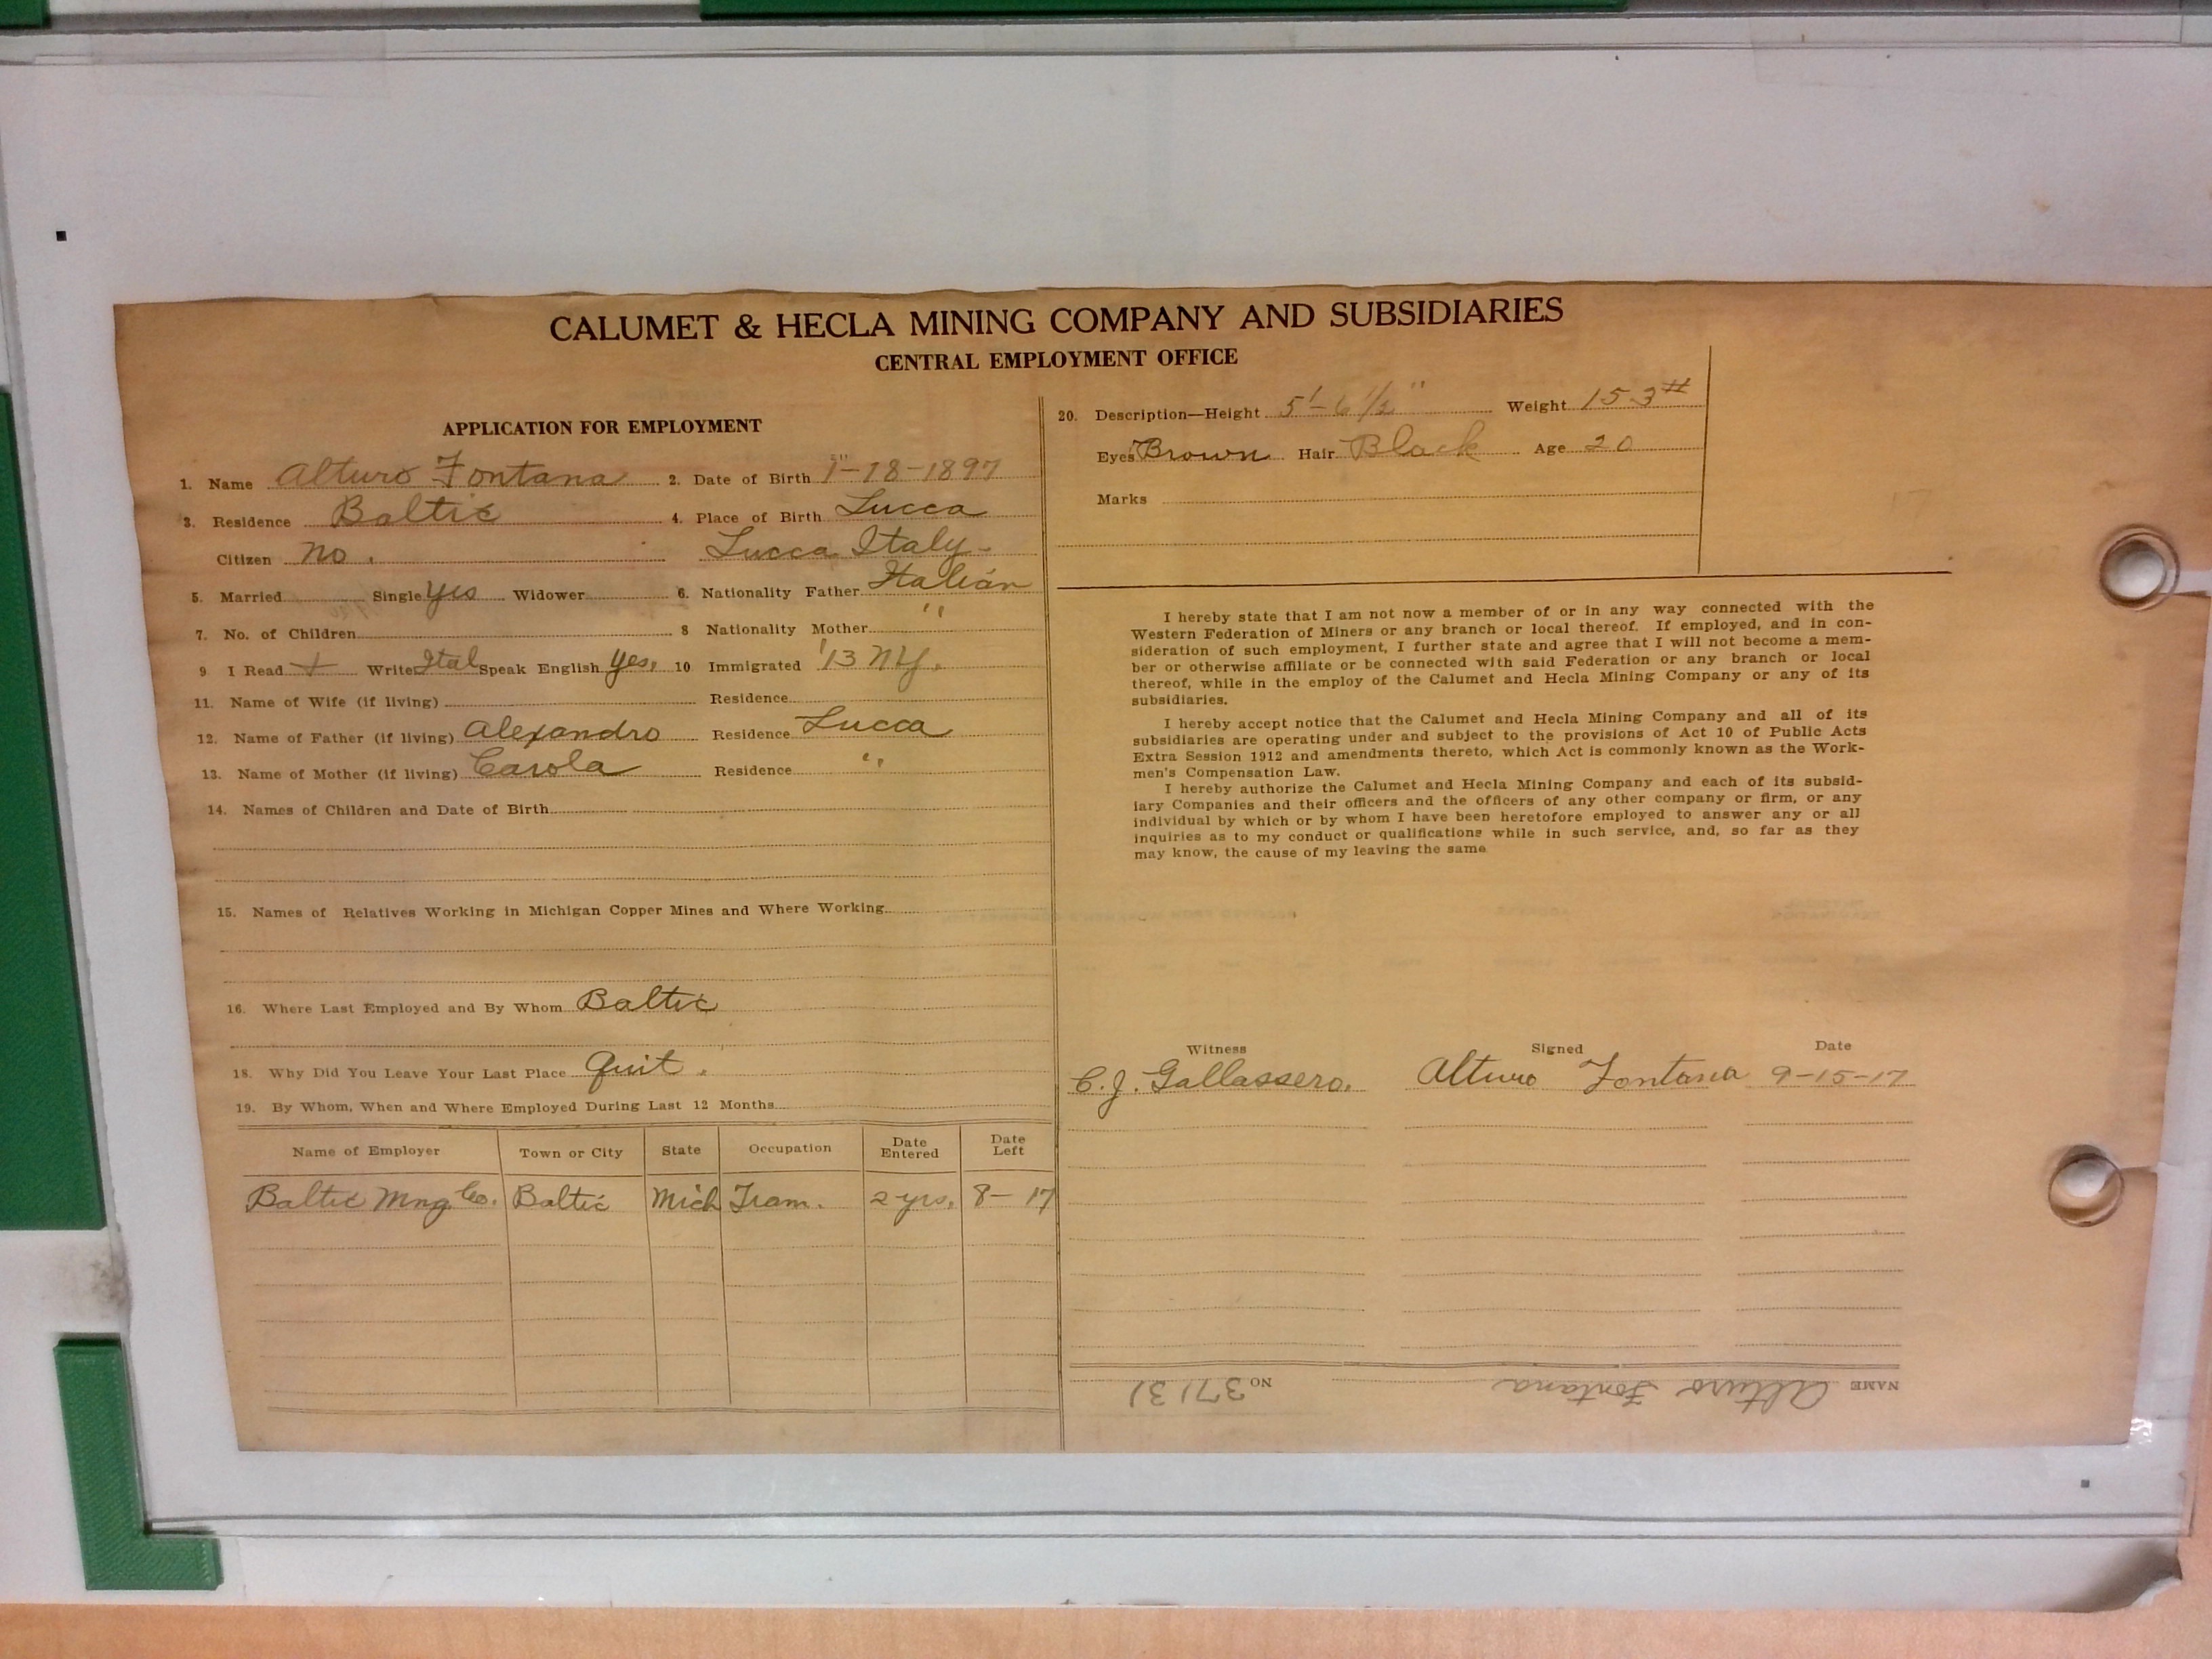 CALUMET & HECLA MINING COMPANY AND SUBSIDIARIES
CENTRAL EMPLOYMENT OFFICE
APPLICATION FOR EMPLOYMENT
1. Name Alturo Fontana 2. Date of Birth 1-18-1897
3. Residence Baltic 4. Place of Birth Lucca
Citizen no. Lucca Italy-
5. Married Single yes Widower 6. Nationality Father Italian
7. No. of Children 8 Nationality Mother "
9 I Read + Write Ital Speak English yes, 10 Immigrated '13 NY.
11. Name of Wife (if living) Residence
12. Name of Father (if living) Alexandro Residence Lucca
13. Name of Mother (if living) Carola Residence "
14. Names of Children and Date of Birth
15. Names of Relatives Working in Michigan Copper Mines and Where Working
16. Where Last Employed and By Whom Baltic
18. Why Did You Leave Your Last Place Quit.
19. By Whom, When and Where Employed During Last 12 Months
Name of Employer Town or City State Occupation Date Entered Date Left
Baltic Mng Co. Baltic Mich Tram. 2 yrs. 8-17
20. Description—Height 5'-6 1/2" Weight 153#
Eyes Brown Hair Black Age 20
Marks
I hereby state that I am not now a member of or in any way connected with the
Western Federation of Miners or any branch or local thereof. If employed, and in con-
sideration of such employment, I further state and agree that I will not become a mem-
ber or otherwise affiliate or be connected with said Federation or any branch or local
thereof, while in the employ of the Calumet and Hecla Mining Company or any of its
subsidiaries.
I hereby accept notice that the Calumet and Hecla Mining Company and all of its
subsidiaries are operating under and subject to the provisions of Act 10 of Public Acts
Extra Session 1912 and amendments thereto, which Act is commonly known as the Work-
men's Compensation Law.
I hereby authorize the Calumet and Hecla Mining Company and each of its subsid-
iary Companies and their officers and the officers of any other company or firm, or any
individual by which or by whom I have been heretofore employed to answer any or all
inquiries as to my conduct or qualifications while in such service, and, so far as they
may know, the cause of my leaving the same
Witness Signed Date
C. J. Gallassero. Alturo Fontana 9-15-17
NAME Alturo Fontana NO 37131